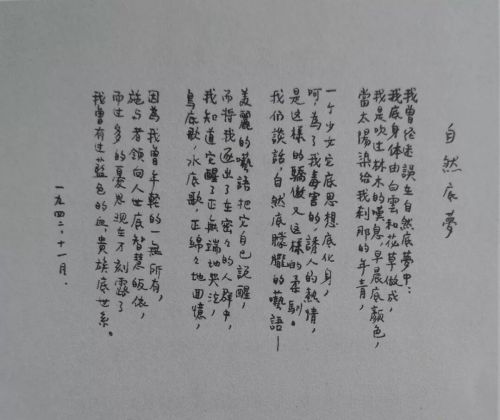 自然底夢
我曾经迷誤在自然底夢中:
我底身体由白雲和花草做成,
我是吹过林木的嘆息,早晨底顏色,
當太陽染給我剎那的年青,
一个少女它底思想底化身,
呵為了我毒害的,誘人的熱情,
是這樣的驕傲又這樣的柔馴。
我们談話,自然底朦朧的囈語—
美麗的囈語把它自己說醒,
而將我逐出了在密々的人群中,
我知道它醒了正無端地哭泣,
鳥底歌,水底歌,正綿々地回憶,
因為我曾年輕的一無所有,
施与者領向人世底智慧皈依,
而过多的憂思現在才刻露了
我曾有过藍色的血,貴族底世系。
一九四二,十一月.